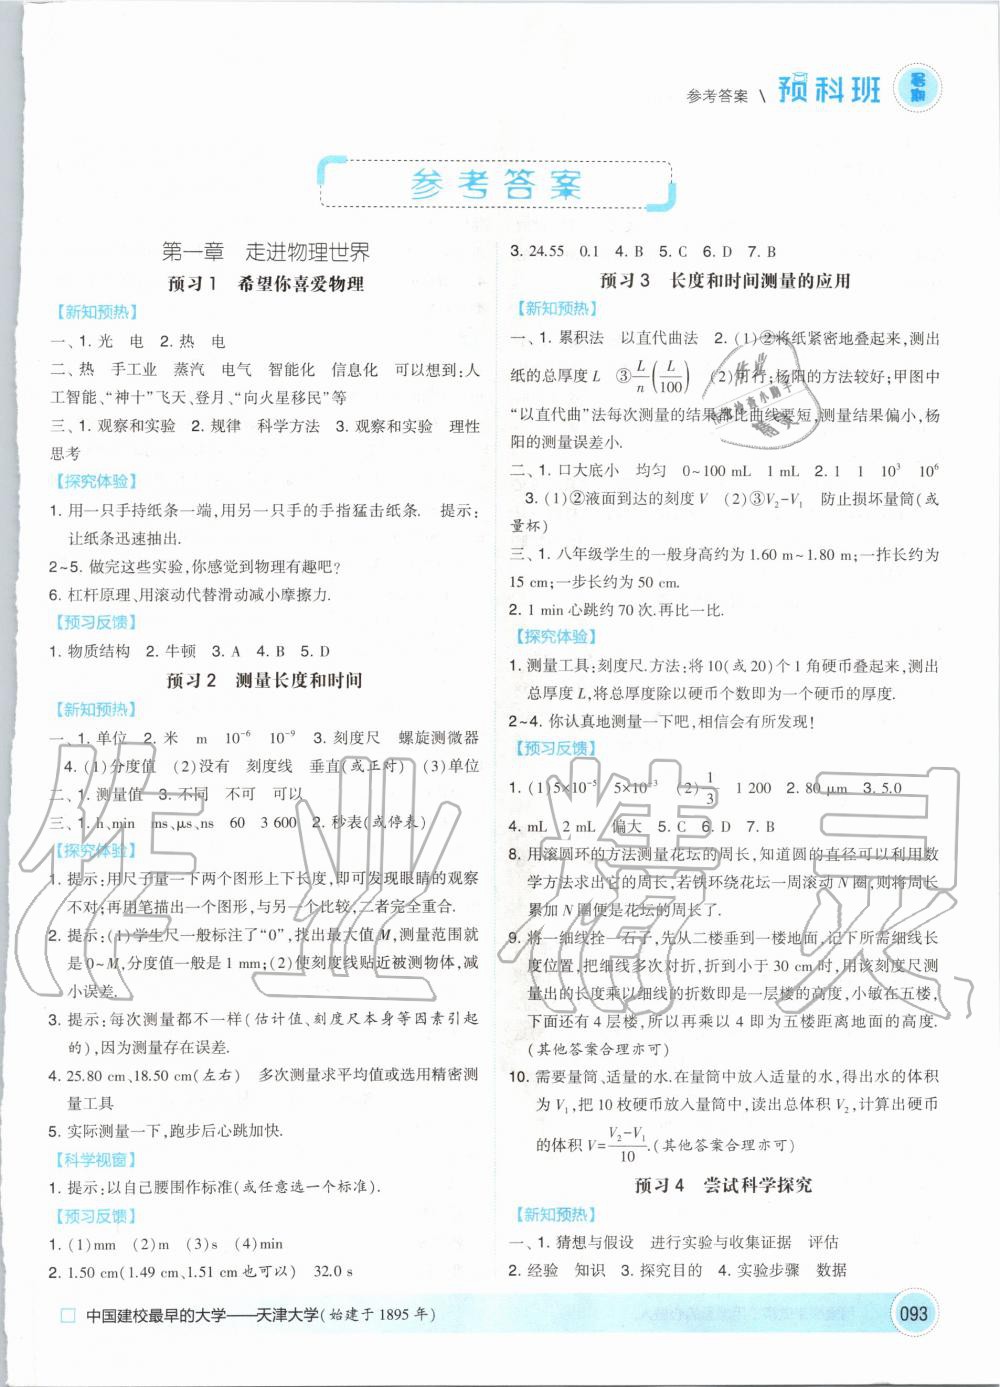 参考答案 \ 预科班 暑期
参考答案
第一章 走进物理世界
预习1 希望你喜爱物理
【新知预热】
一、1. 光 电 2. 热 电
二、热 手工业 蒸汽 电气 智能化 信息化 可以想到:人
工智能、“神十”飞天、登月、“向火星移民”等
三、1. 观察和实验 2. 规律 科学方法 3. 观察和实验 理性
思考
【探究体验】
1. 用一只手持纸条一端,用另一只手的手指猛击纸条. 提示:
让纸条迅速抽出.
2~5. 做完这些实验,你感觉到物理有趣吧?
6. 杠杆原理、用滚动代替滑动减小摩擦力.
【预习反馈】
1. 物质结构 2. 牛顿 3. A 4. B 5. D
预习2 测量长度和时间
【新知预热】
一、1. 单位 2. 米 m 10⁻⁶ 10⁻⁹ 3. 刻度尺 螺旋测微器
4. (1)分度值 (2)没有 刻度线 垂直(或正对) (3)单位
二、1. 测量值 3. 不同 不可 可以
三、1. h、min ms、μs、ns 60 3 600 2. 秒表(或停表)
【探究体验】
1. 提示:用尺子量一下两个图形上下长度,即可发现眼睛的观察
不对;再用笔描出一个图形,与另一个比较,二者完全重合.
2. 提示:(1)学生尺一般标注了“0”,找出最大值M,测量范围就
是0~M,分度值一般是1 mm;(2)使刻度线贴近被测物体,减
小误差.
3. 提示:每次测量都不一样(估计值、刻度尺本身等因素引起
的),因为测量存在误差.
4. 25.80 cm、18.50 cm(左右) 多次测量求平均值或选用精密测
量工具
5. 实际测量一下,跑步后心跳加快.
【科学视窗】
1. 提示:以自己腰围作标准(或任意选一个标准).
【预习反馈】
1. (1)mm (2)m (3)s (4)min
2. 1.50 cm(1.49 cm、1.51 cm也可以) 32.0 s
3. 24.55 0.1 4. B 5. C 6. D 7. B
预习3 长度和时间测量的应用
【新知预热】
一、1. 累积法 以直代曲法 2. (1)②将纸紧密地叠起来,测出
纸的总厚度L ③L/n(L/100) (2)可行;杨阳的方法较好;甲图中
“以直代曲”法每次测量的结果都比曲线要短,测量结果偏小,杨
阳的测量误差小.
二、1. 口大底小 均匀 0~100 mL 1 mL 2. 1 1 10³ 10⁶
3. (1)②液面到达的刻度V (2)③V₂-V₁ 防止损坏量筒(或
量杯)
三、1. 八年级学生的一般身高约为1.60 m~1.80 m;一拃长约为
15 cm;一步长约为50 cm.
2. 1 min心跳约70次.再比一比.
【探究体验】
1. 测量工具:刻度尺.方法:将10(或20)个1角硬币叠起来,测出
总厚度L,将总厚度除以硬币个数即为一个硬币的厚度.
2~4. 你认真地测量一下吧,相信会有所发现!
【预习反馈】
1. (1)5×10⁻⁵ 5×10⁻³ (2)1/3 1 200 2. 80 μm 3. 5.0
4. mL 2 mL 偏大 5. C 6. D 7. B
8. 用滚圆环的方法测量花坛的周长,知道圆的直径可以利用数
学方法求出它的周长,若铁环绕花坛一周滚动N圈,则将周长
累加N圈便是花坛的周长了.
9. 将一细线拴一石子,先从二楼垂到一楼地面,记下所需细线长
度位置,把细线多次对折,折到小于30 cm时,用该刻度尺测
量出的长度乘以细线的折数即是一层楼的高度,小敏在五楼,
下面还有4层楼,所以再乘以4即为五楼距离地面的高度.
(其他答案合理亦可)
10. 需要量筒、适量的水.在量筒中放入适量的水,得出水的体积
为V₁,把10枚硬币放入量筒中,读出总体积V₂,计算出硬币
的体积V=(V₂-V₁)/10.(其他答案合理亦可)
预习4 尝试科学探究
【新知预热】
一、1. 猜想与假设 进行实验与收集证据 评估
2. 经验 知识 3. 探究目的 4. 实验步骤 数据
中国建校最早的大学——天津大学(始建于1895年)
093
作业精灵